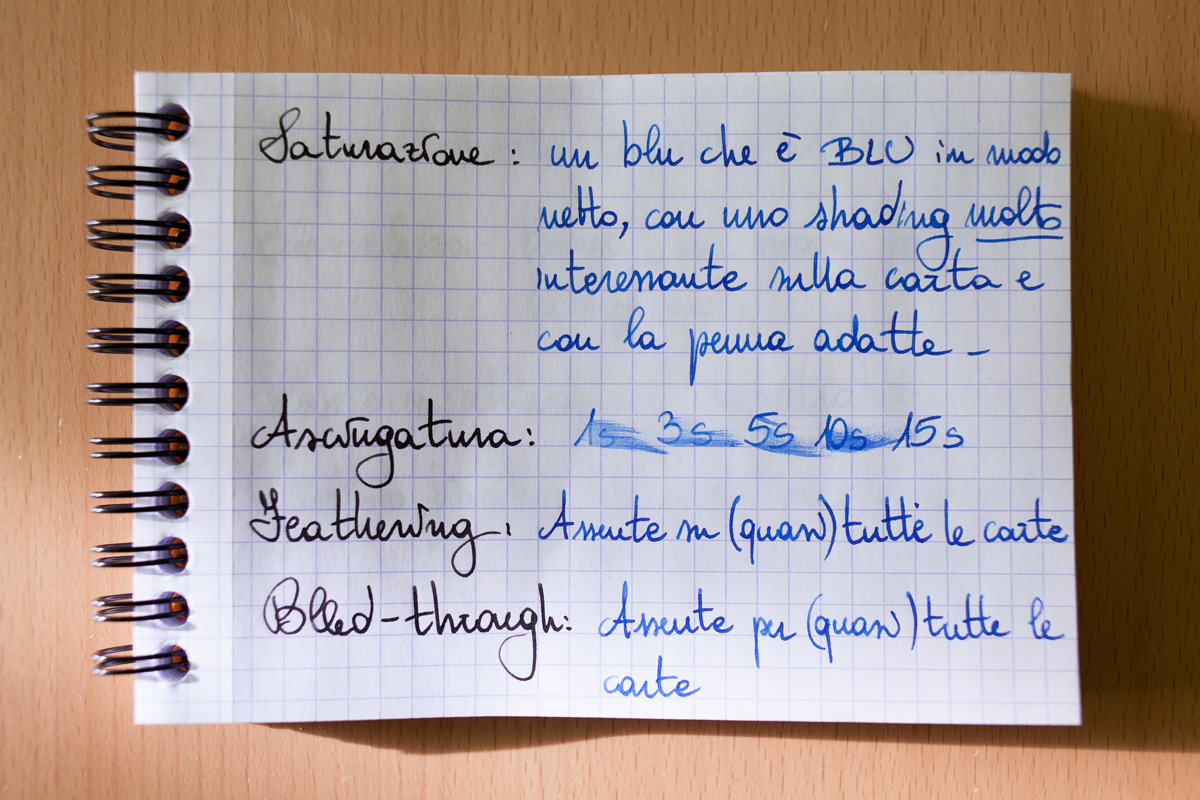 Saturazione: un blu che è BLU in modo
netto, con uno shading molto
interessante sulla carta e
con la penna adatte -
Asciugatura: 1s 3s 5s 10s 15s
Feathering: Assente su (quasi) tutte le carte
Bleed-through: Assente per (quasi) tutte le
carte